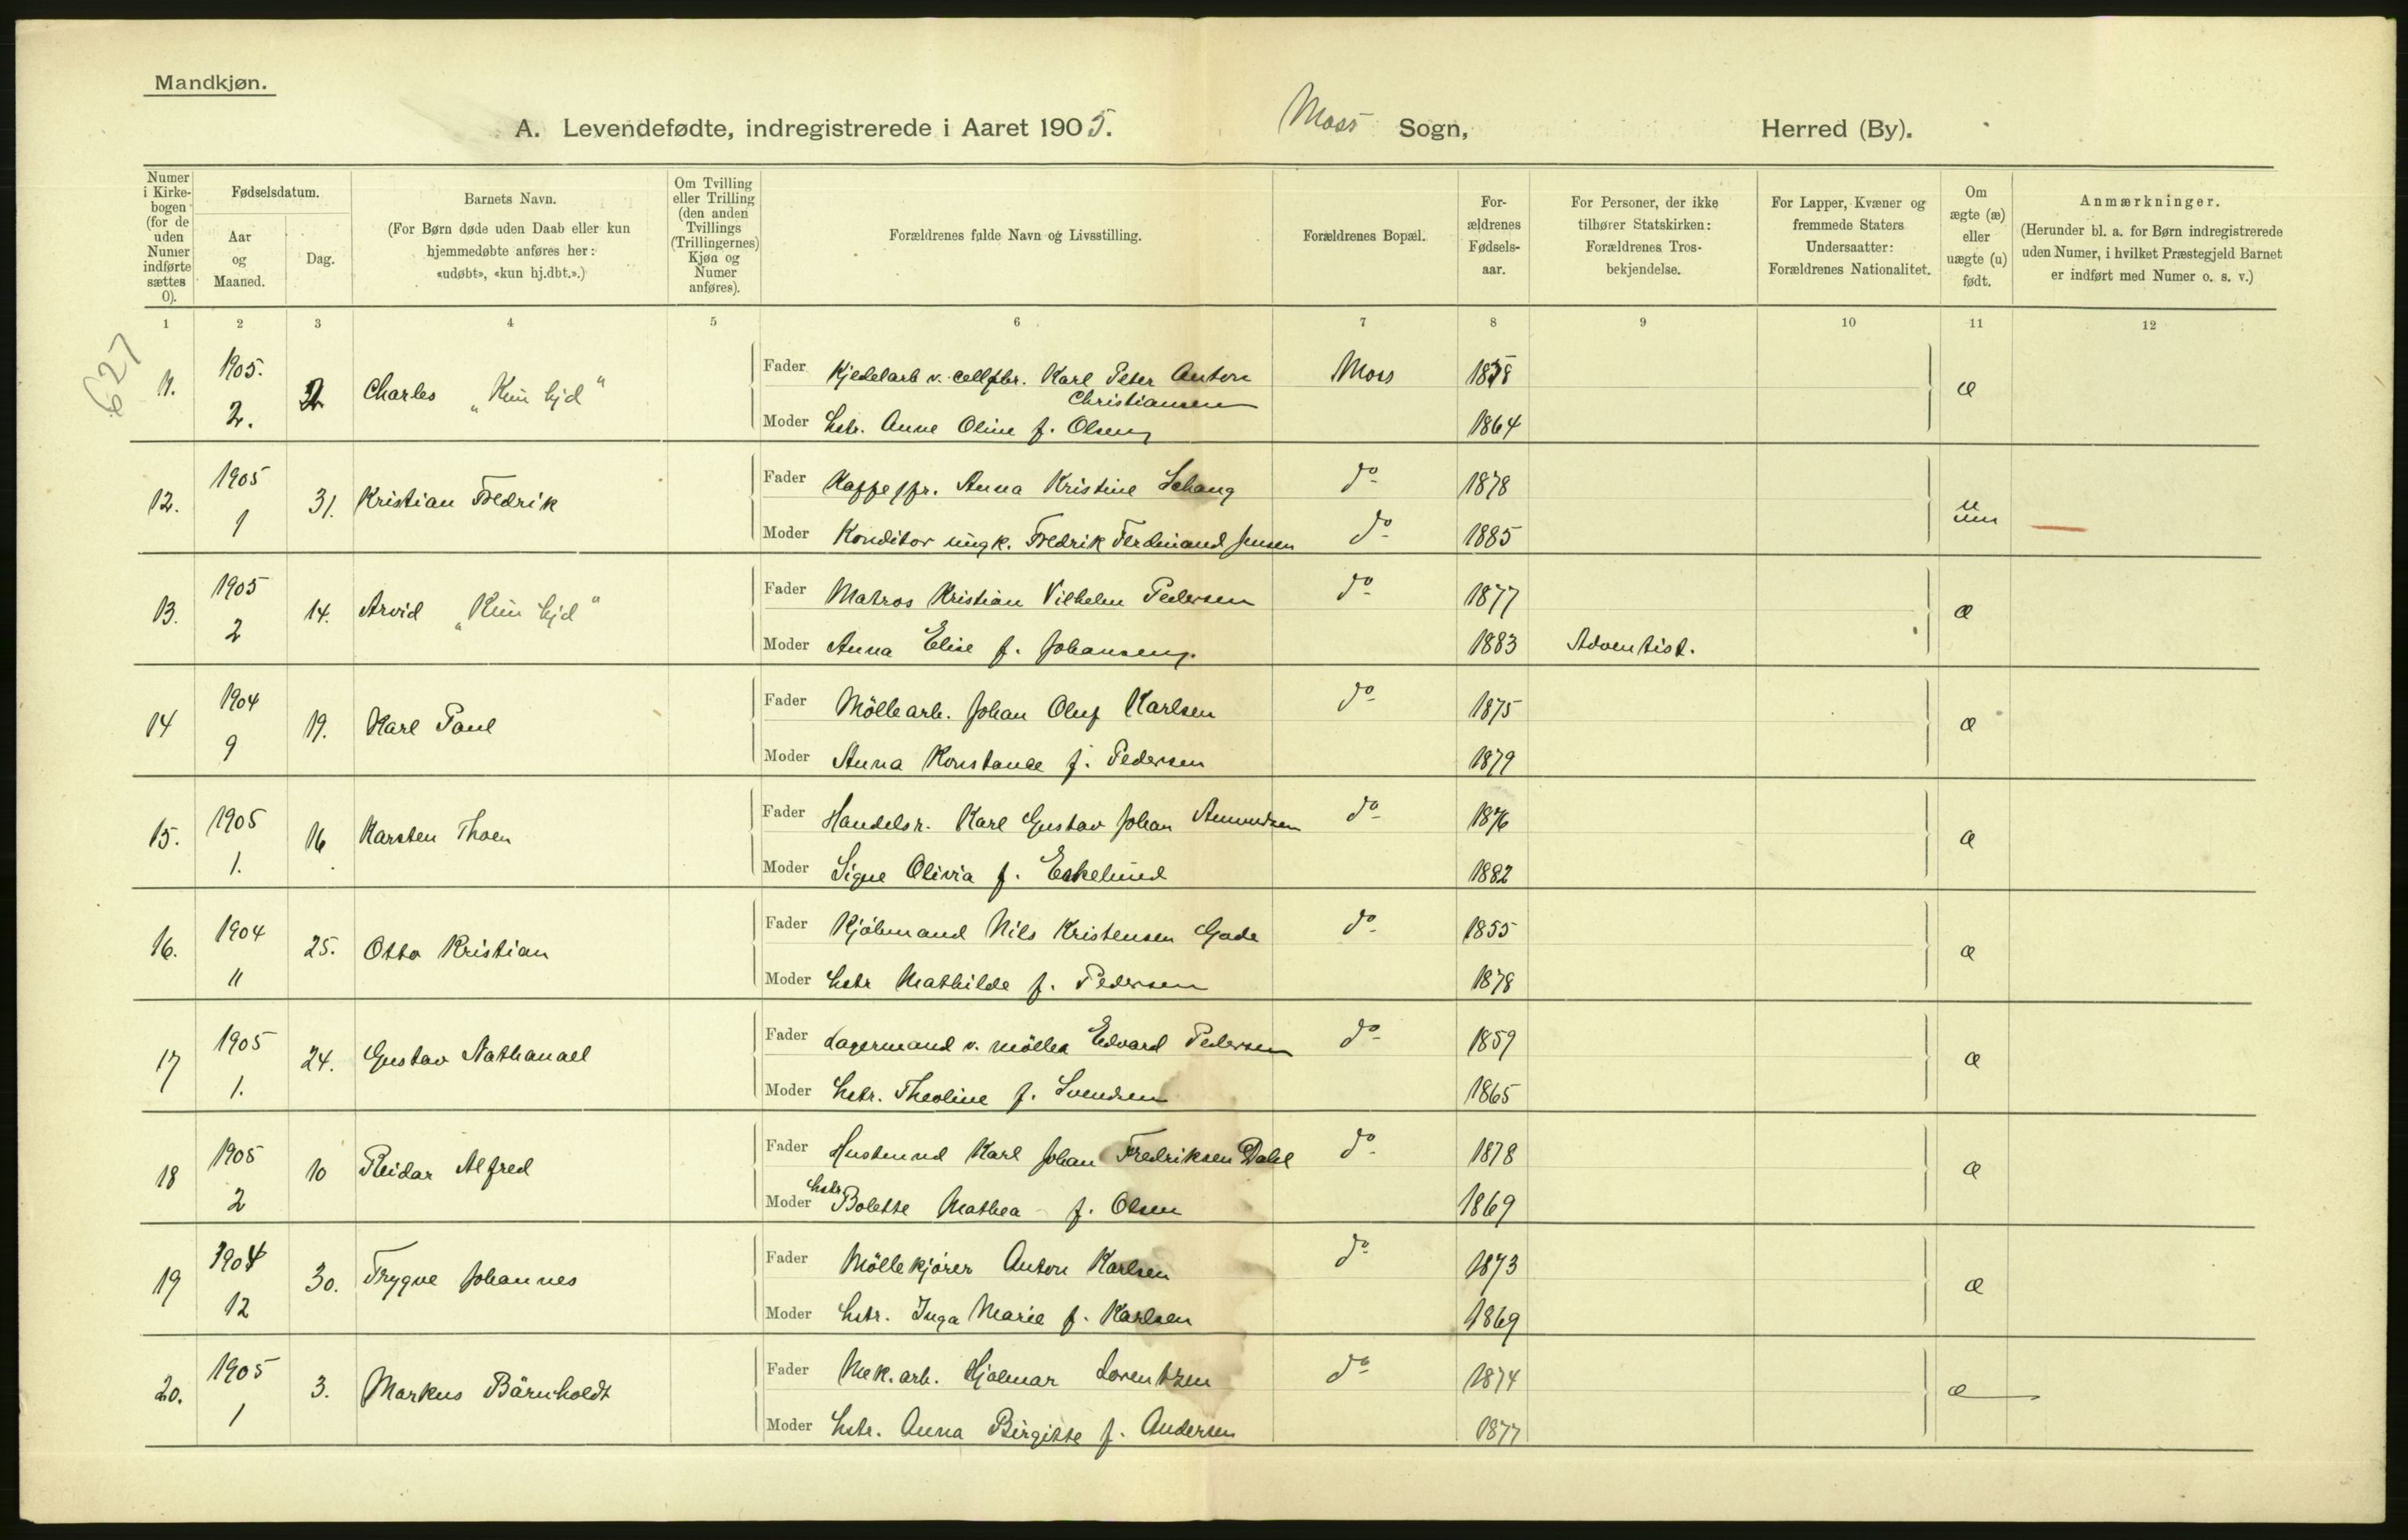 Mandkjøn.
A. Levendefødte, indregistrerede i Aaret 1905. Moss Sogn, Herred (By).
Numer i Kirkebogen (for de uden Numer indførte sættes 0).
Fødselsdatum.
Aar og Maaned.
Dag.
Barnets Navn.
(For Børn døde uden Daab eller kun hjemmedøbte anføres her: «udøbt», «kun hj.dbt.».)
Om Tvilling eller Trilling (den anden Tvillings (Trillingernes) Kjøn og Numer anføres).
Forældrenes fulde Navn og Livsstilling.
Forældrenes Bopæl.
Forældrenes Fødselsaar.
For Personer, der ikke tilhører Statskirken: Forældrenes Trosbekjendelse.
For Lapper, Kvæner og fremmede Staters Undersaatter: Forældrenes Nationalitet.
Om ægte (æ) eller uægte (u) født.
Anmærkninger.
(Herunder bl. a. for Børn indregistrerede uden Numer, i hvilket Præstegjeld Barnet er indført med Numer o. s. v.)
1 2 3 4 5 6 7 8 9 10 11 12
627
11. 1905. 2. 2 Charles "Kun hjd" Fader Kjedelarb v. cellfbr. Karl Peter Anton Christiansen Moss æ
Moder hstr. Anne Oline f. Olsen 1864
12. 1905 1 31. Kristian Fredrik Fader Anna Kristine Schang do 1878
Moder Konditor ungk. Fredrik Ferdinand Jensen do 1885
13. 1905 2 14. Arvid "Kun hjd" Fader Matros Kristian Vilhelm Pedersen do 1877 æ
Moder Anna Elise f. Johansen 1883 Adventist.
14 1904 9 19. Karl Paul Fader Möllearb. Johan Oluf Karlsen do 1875 æ
Moder Anna Konstance f. Pedersen 1879
15. 1905 1. 16 Karsten Thoen Fader Handelsr. Karl Gustav Johan Amundsen do 1876 æ
Moder Signe Olivia f. Eskelund 1882
16. 1904 11 25. Otto Kristian Fader Kjöbmand Nils Kristensen Gade do 1855 æ
Moder hstr Mathilde f. Pedersen 1878
17 1905 1. 24. Gustav Nathanael Fader Lagermand v. mölla Edvard Pedersen do 1859 æ
Moder hstr. Theoline f. Svendsen 1865
18 1905 2 10 Reidar Alfred Fader Karl Johan Fredriksen Dahl do 1878 æ
Moder hstr Bolette Mathea f. Olsen 1869
19 1904 12 30. Trygve Johannes Fader Möllekjörer Anton Karlsen do 1873 æ
Moder hstr. Inga Marie f. Karlsen 1869
20. 1905 1 3. Markus Bärnholdt Fader Mek. arb. Hjalmar Lorentzen do 1874 æ
Moder hstr. Anna Birgitte f. Andersen 1877